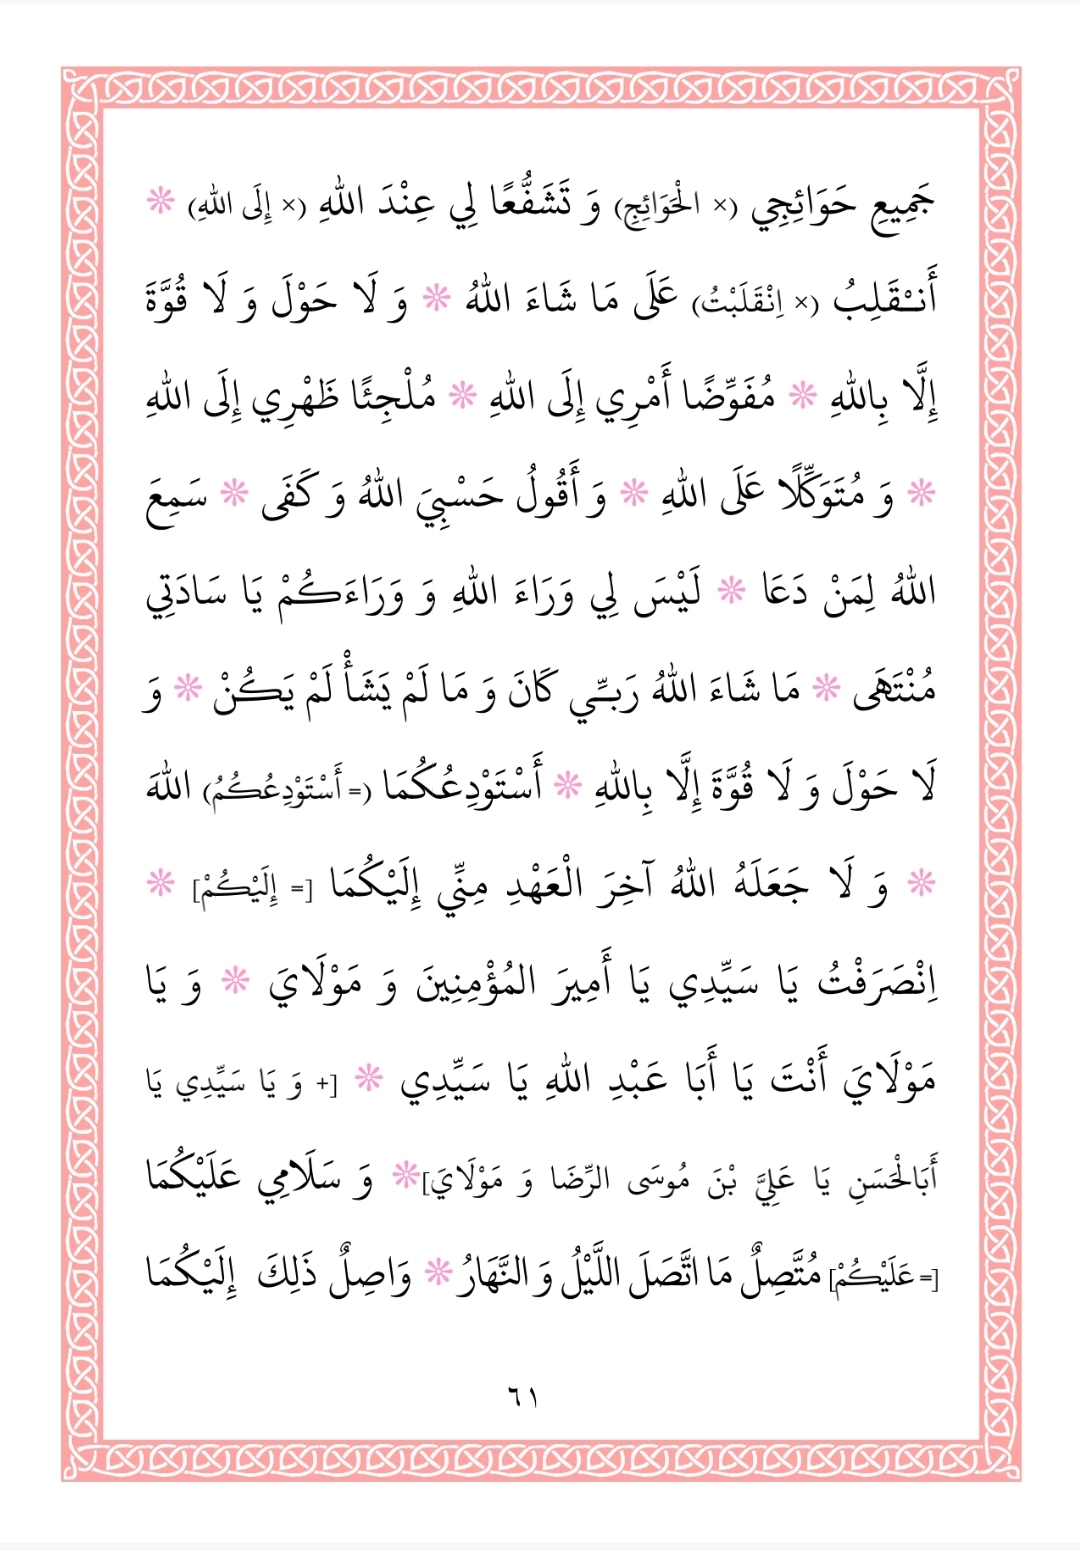 جَمِيعِ حَوَائِجِي (× الْحَوَائِجِ) وَ تَشَفُّعًا لِي عِنْدَ اللهِ (× إِلَى اللهِ) ❊
أَنـْقَلِبُ (× اِنْقَلَبْتُ) عَلَى مَا شَاءَ اللهُ ❊ وَ لَا حَوْلَ وَ لَا قُوَّةَ
إِلَّا بِاللهِ ❊ مُفَوِّضًا أَمْرِي إِلَى اللهِ ❊ مُلْجِئًا ظَهْرِي إِلَى اللهِ
❊ وَ مُتَوَكِّلًا عَلَى اللهِ ❊ وَ أَقُولُ حَسْبِيَ اللهُ وَ كَفَى ❊ سَمِعَ
اللهُ لِمَنْ دَعَا ❊ لَيْسَ لِي وَرَاءَ اللهِ وَ وَرَاءَكُمْ يَا سَادَتِي
مُنْتَهَى ❊ مَا شَاءَ اللهُ رَبِّي كَانَ وَ مَا لَمْ يَشَأْ لَمْ يَكُنْ ❊ وَ
لَا حَوْلَ وَ لَا قُوَّةَ إِلَّا بِاللهِ ❊ أَسْتَوْدِعُكُمَا (= أَسْتَوْدِعُكُمُ) اللهَ
❊ وَ لَا جَعَلَهُ اللهُ آخِرَ الْعَهْدِ مِنِّي إِلَيْكُمَا [= إِلَيْكُمْ] ❊
اِنْصَرَفْتُ يَا سَيِّدِي يَا أَمِيرَ المُؤْمِنِينَ وَ مَوْلَايَ ❊ وَ يَا
مَوْلَايَ أَنْتَ يَا أَبَا عَبْدِ اللهِ يَا سَيِّدِي ❊ [+ وَ يَا سَيِّدِي يَا
أَبَالْحَسَنِ يَا عَلِيَّ بْنَ مُوسَى الرِّضَا وَ مَوْلَايَ]❊ وَ سَلَامِي عَلَيْكُمَا
[= عَلَيْكُمْ] مُتَّصِلٌ مَا اتَّصَلَ اللَّيْلُ وَ النَّهَارُ ❊ وَاصِلٌ ذَلِكَ إِلَيْكُمَا
٦١